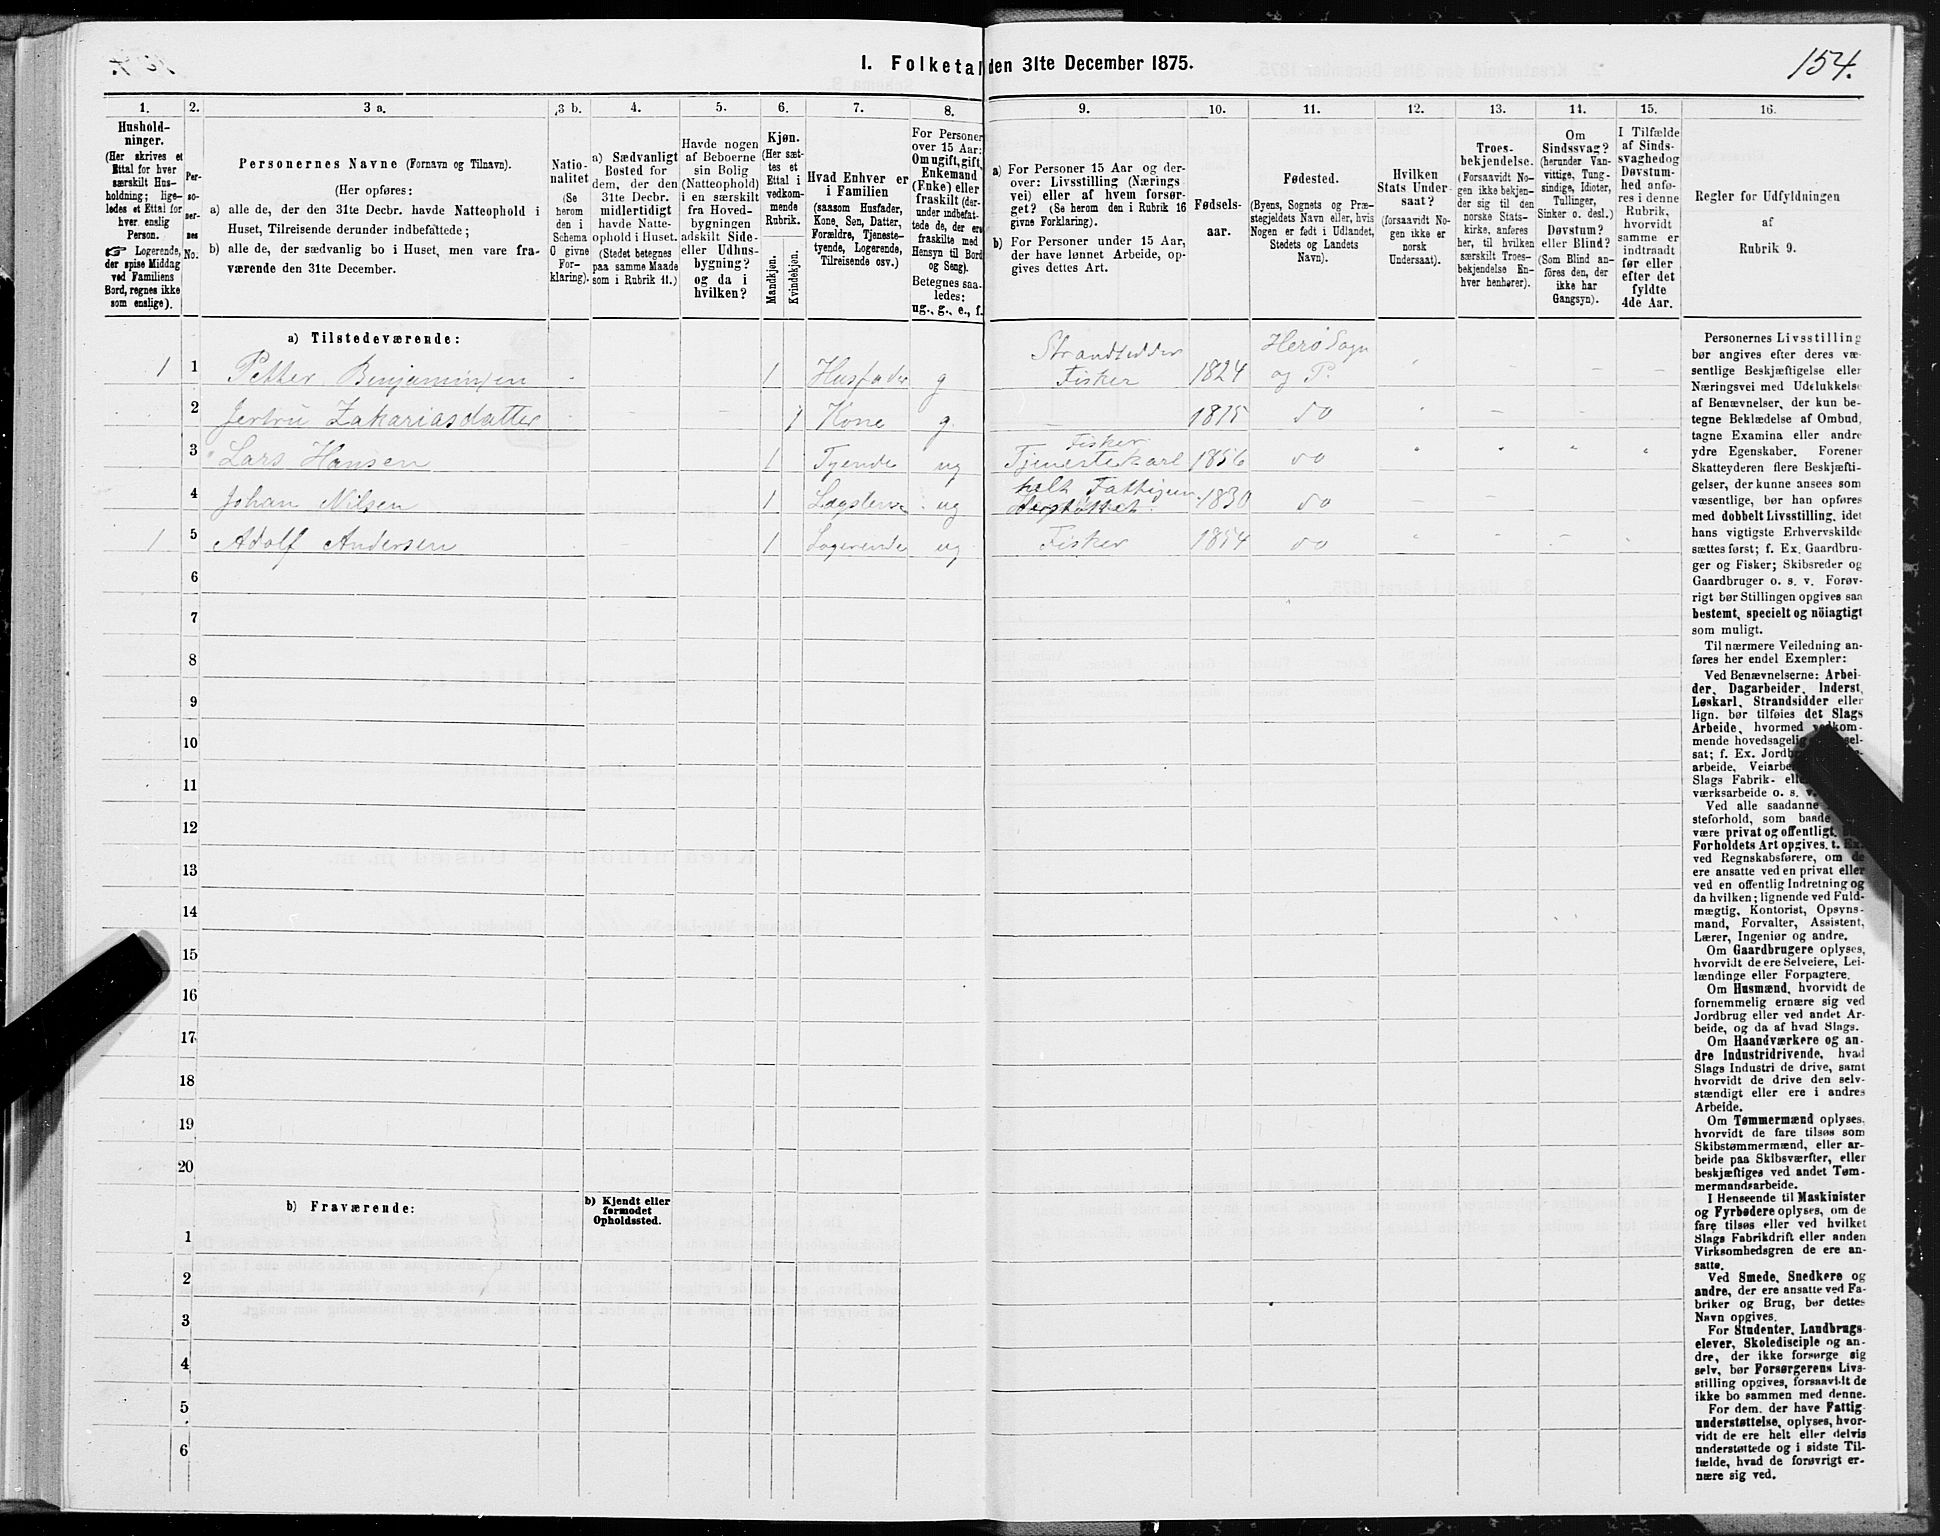 I. Folketal den 31te December 1875.
154.
1.
Hushold-
ninger.
(Her skrives et
Ettal for hver
særskilt Hus-
holdning; lige-
ledes et Ettal for
hver enslig
Person.
☞ Logerende,
der spise Middag
ved Familiens
Bord, regnes ikke
som enslige).
2.
Per-
so-
ner-
nes
No.
3 a.
Personernes Navne (Fornavn og Tilnavn).
(Her opføres:
a) alle de, der den 31te Decbr. havde Natteophold i
Huset, Tilreisende derunder indbefattede;
b) alle de, der sædvanlig bo i Huset, men vare fra-
værende den 31te December.
3 b.
Natio-
nalitet
(Se
herom
den i
Schema
O givne
For-
klaring).
4.
a) Sædvanligt
Bosted for
dem, der den
31te Decbr.
midlertidigt
havde Natte-
ophold i Huset.
(Stedet betegnes
paa samme Maade
som i Rubrik 11.)
5.
Havde nogen
af Beboerne
sin Bolig
(Natteophold)
i en særskilt
fra Hoved-
bygningen
adskilt Side-
eller Udhus-
bygning?
og da i
hvilken?
6.
Kjøn.
(Her sæt-
tes et
Ettal i
vedkom-
mende
Rubrik.
Mandkjøn.
Kvindekjøn.
7.
Hvad Enhver er
i Familien
(saasom Husfader,
Kone, Søn, Datter,
Forældre, Tjeneste-
tyende, Logerende,
Tilreisende osv.)
8.
For Personer
over 15 Aar:
Om ugift, gift,
Enkemand
(Enke) eller
fraskilt (der-
under indbefat-
tede de, der ere
fraskilte med
Hensyn til Bord
og Seng).
Betegnes saa-
ledes:
ug., g., e., f.
9.
a) For Personer 15 Aar og der-
over: Livsstilling (Nærings
vei) eller af hvem forsør-
get? (Se herom den i Rubrik 16
givne Forklaring).
b) For Personer under 15 Aar,
der have lønnet Arbeide, op-
gives dettes Art.
10.
Fødsels-
aar.
11.
Fødested.
(Byens, Sognets og Præ-
stegjeldets Navn eller, hvis
Nogen er født i Udlandet,
Stedets og Landets
Navn).
12.
Hvilken
Stats Under-
saat?
(forsaavidt No-
gen ikke er
norsk
Undersaat).
13.
Troes-
bekjendelse.
(Forsaavidt No-
gen ikke bekjen-
der sig til den
norske Stats-
kirke, anføres
her, til hvilken
særskilt Troes-
bekjendelse En-
hver henhører).
14.
Om
Sindssvag?
(herunder Van-
vittige, Tung-
sindige, Idioter,
Tullinger,
Sinker o. desl.)
Døvstum?
eller Blind?
(Som Blind an-
føres den, der
ikke har
Gangsyn).
15.
I Tilfælde
af Sinds-
svaghed og
Døvstum-
hed anfø-
res i denne
Rubrik,
hvorvidt
samme er
indtraadt
før eller
efter det
fyldte
4de Aar.
16.
Regler for Udfyldningen
af
Rubrik 9.
a) Tilstedeværende:
1 1 Petter Benjaminsen 1 Husfader g Strandsidder Fisker 1824 Herø Sogn og P.
2 Jertru Zakariasdatter 1 Kone g. 1815 do
3 Lars Hansen 1 Tyende ug Fisker Tjenestekarl 1856 do
4 Johan Nilsen 1 Lægslem ug helt Fattigun- 1830 do
1 5 Adolf Andersen 1 Logerende ug Fisker 1854 do
6
7
8
9
10
11
12
13
14
15
16
17
18
19
20
b) Fraværende:
b) Kjendt eller
formodet
Opholdssted.
1
2
3
4
5
6
Personernes Livsstilling
bør angives efter deres væ-
sentlige Beskjæftigelse eller
Næringsvei med Udelukkelse
af Benævnelser, der kun be-
tegne Beklædelse af Ombud,
tagne Examina eller andre
ydre Egenskaber. Forener
Skatteyderen flere Beskjæfti-
gelser, der kunne ansees som
væsentlige, bør han opføres
med dobbelt Livsstilling, idet
hans vigtigste Erhvervskilde
sættes først; f. Ex. Gaardbru-
ger og Fisker; Skibsreder og
Gaardbruger o. s. v. Forøv-
rigt bør Stillingen opgives saa
bestemt, specielt og nöiagtigt
som muligt.
Til nærmere Veiledning an-
føres her endel Exempler:
Ved Benævnelserne: Arbei-
der, Dagarbeider, Inderst,
Løskarl, Strandsidder eller
lign. bør tilføies det Slags
Arbeide, hvormed vedkom-
mende hovedsagelig
sat; f. Ex.
arbeide,
Slags Fabrik-
værksarbeide o. s. v.
Ved alle saadanne
steforhold, som baade
være privat og offentligt,
Forholdets Art opgives, t. Ex.
ved Regnskabsførere, om de
ere ansatte ved en privat eller
ved en offentlig Indretning og
da hvilken; lignende ved Fuld-
mægtig, Kontorist, Opsyns-
mand, Forvalter, Assistent,
Lærer, Ingeniør og andre.
Om Gaardbrugere oplyses,
hvorvidt de ere Selveiere, Lei-
lændinge eller Forpagtere.
Om Husmænd, hvorvidt de
fornemmelig ernære sig ved
Jordbrug eller ved andet Ar-
beide, og da af hvad Slags.
Om Haandværkere og an-
dre Industridrivende, hvad
Slags Industri de drive, samt
hvorvidt de drive den selv-
stændigt eller ere i andres
Arbeide.
Om Tømmermænd oplyses,
hvorvidt de fare tilsøs som
Skibstømmermænd, eller ar-
beide paa Skibsværfter, eller
beskjæftiges ved andet Tøm-
mermandsarbeide.
I Henseende til Maskinister
og Fyrbødere oplyses, om de
fare tilsøs eller ved hvilket
Slags Fabrikdrift eller anden
Virksomhedsgren de ere an-
satte.
Ved Smede, Snedkere og
andre, der ere ansatte ved Fa-
briker og Brug, bør dettes
Navn opgives.
For Studenter, Landbrugs-
elever, Skoledisciple og an-
dre, der ikke forsørge sig
selv, bør Forsørgerens Livs-
stilling opgives, forsaavidt de
ikke bo sammen med denne.
For dem, der have Fattig-
understøttelse, oplyses, hvor-
vidt de ere helt eller delvis
understøttede og i sidste Til-
fælde, hvad de forøvrigt er-
nære sig ved.